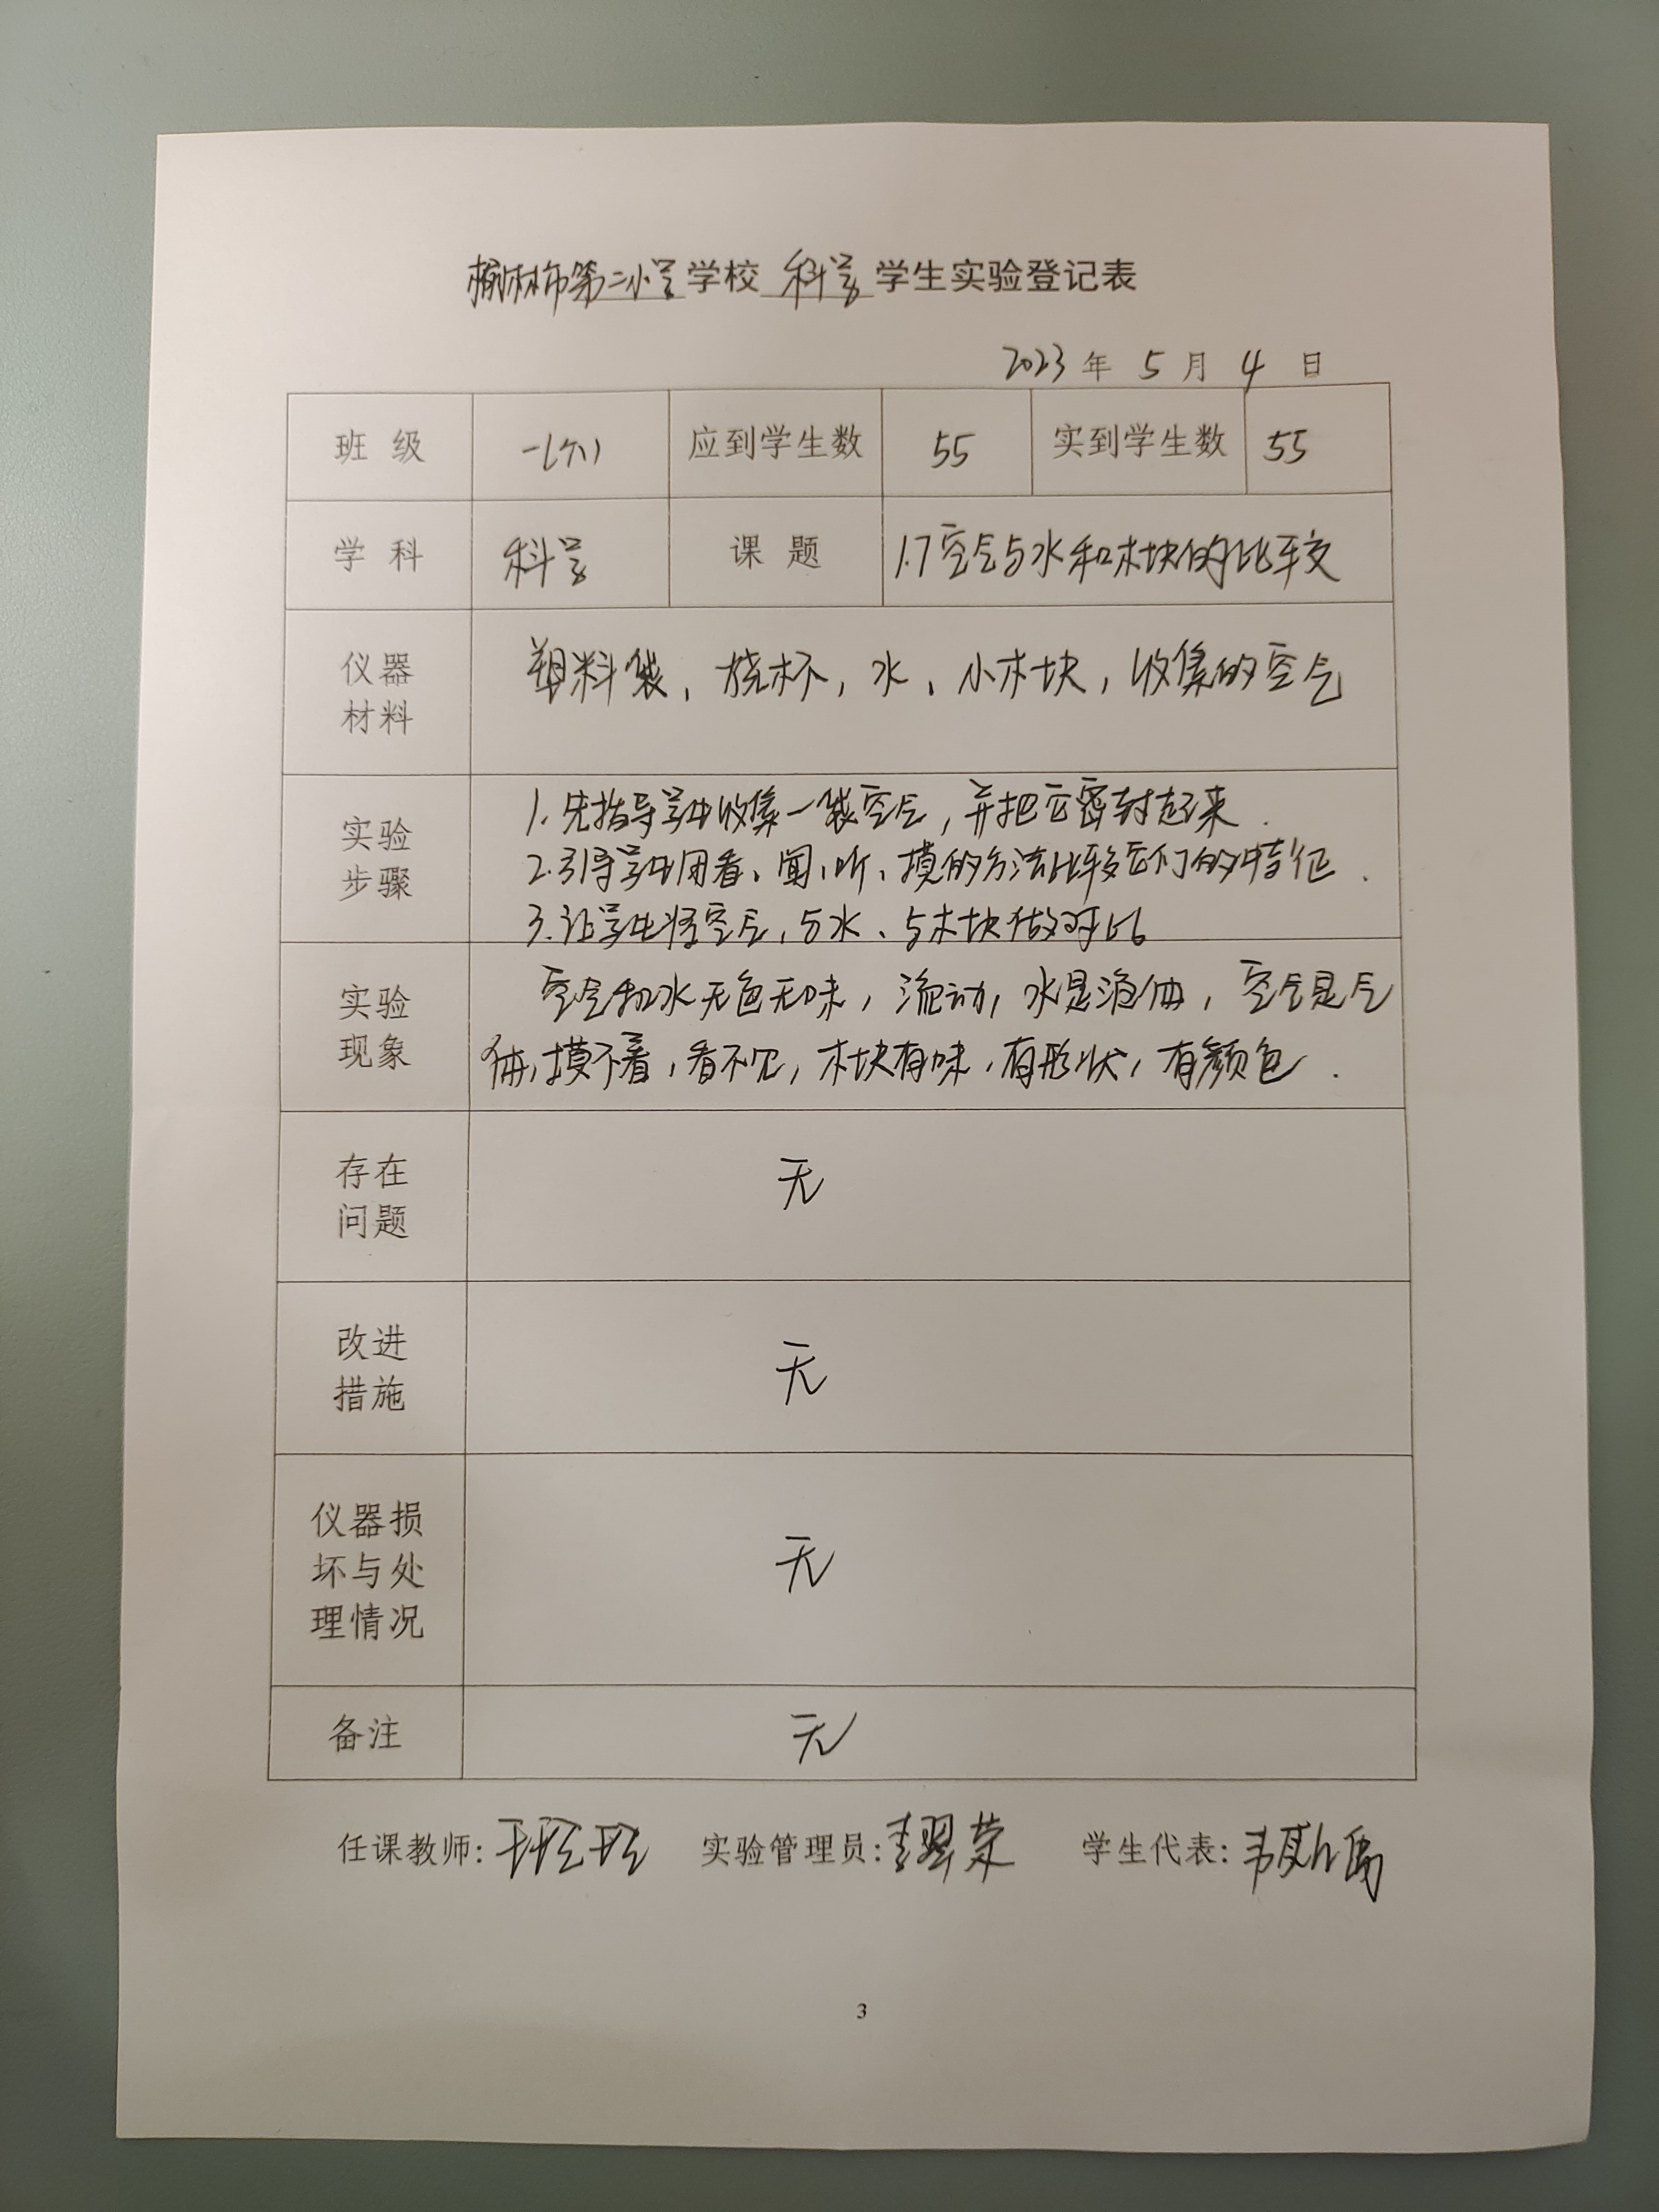 榆林市第二小学学校 科学 学生实验登记表
2023年 5月 4日
班级 一(六) 应到学生数 55 实到学生数 55
学科 科学 课题 1.7空气与水和木块的比较
仪器
材料
塑料袋、烧杯,水、小木块,收集的空气
实验
步骤
1.先指导学生收集一袋空气,并把它密封起来.
2.引导学生用看、闻、听、摸的方法比较它们的特征.
3.让学生将空气,与水、与木块做对比
实验
现象
空气和水无色无味,流动,水是液体,空气是气
体,摸不着,看不见,木块有味,有形状,有颜色.
存在
问题
无
改进
措施
无
仪器损
坏与处
理情况
无
备注 无
任课教师: 实验管理员: 学生代表:
3